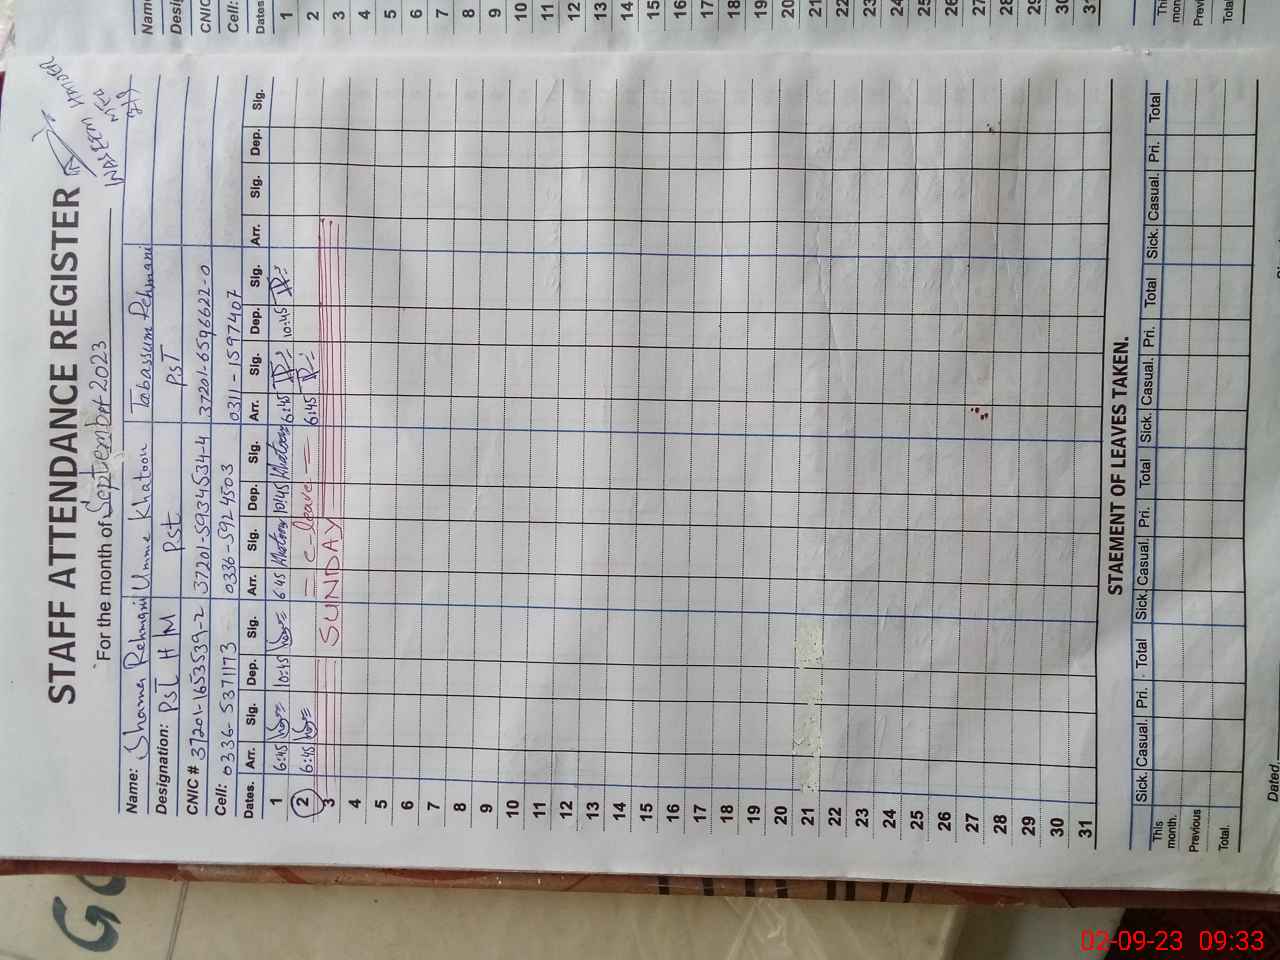 STAFF ATTENDANCE REGISTER
WASEEM HAIDER
MEA
For the month of September 2023
Name: Shama Rehmani Umme Khatoon Tabassum Rehmani
Designation: PST HM PST PST
CNIC # 37201-1653539-2 37201-5934534-4 37201-6596622-0
Cell: 0336-5371173 0336-5924503 0311-1597407
Dates. Arr. Sig. Dep. Sig. Arr. Sig. Dep. Sig. Arr. Sig. Dep. Sig. Arr. Sig. Dep. Sig.
1 6:45 10:45 6:45 Khatoon 10:45 Khatoon 6:45 10:45
2 6:45 = C-leave = 6:45
3 SUNDAY
4
5
6
7
8
9
10
11
12
13
14
15
16
17
18
19
20
21
22
23
24
25
26
27
28
29
30
31
STAEMENT OF LEAVES TAKEN.
Sick. Casual. Pri. Total Sick. Casual. Pri. Total Sick. Casual. Pri. Total Sick. Casual. Pri. Total
This month.
Previous
Total.
Dated.
Name
Desig
CNIC
Cell:
Dates
1
2
3
4
5
6
7
8
9
10
11
12
13
14
15
16
17
18
19
20
21
22
23
24
25
26
27
28
29
30
31
This
mon
Previ
Total
02-09-23 09:33